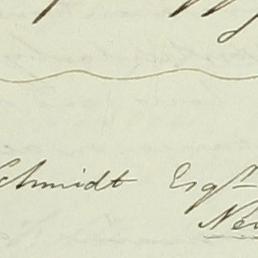 Schmidt Esqr
New